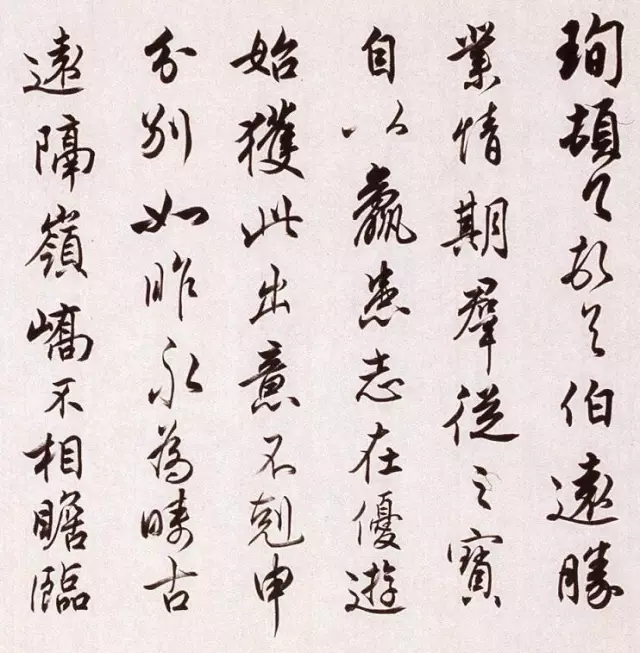 珣頓首頓首伯遠勝
業情期群從之寶
自以羸患志在優遊
始獲此出意不剋申
分別如昨永為疇古
遠隔嶺嶠不相瞻臨